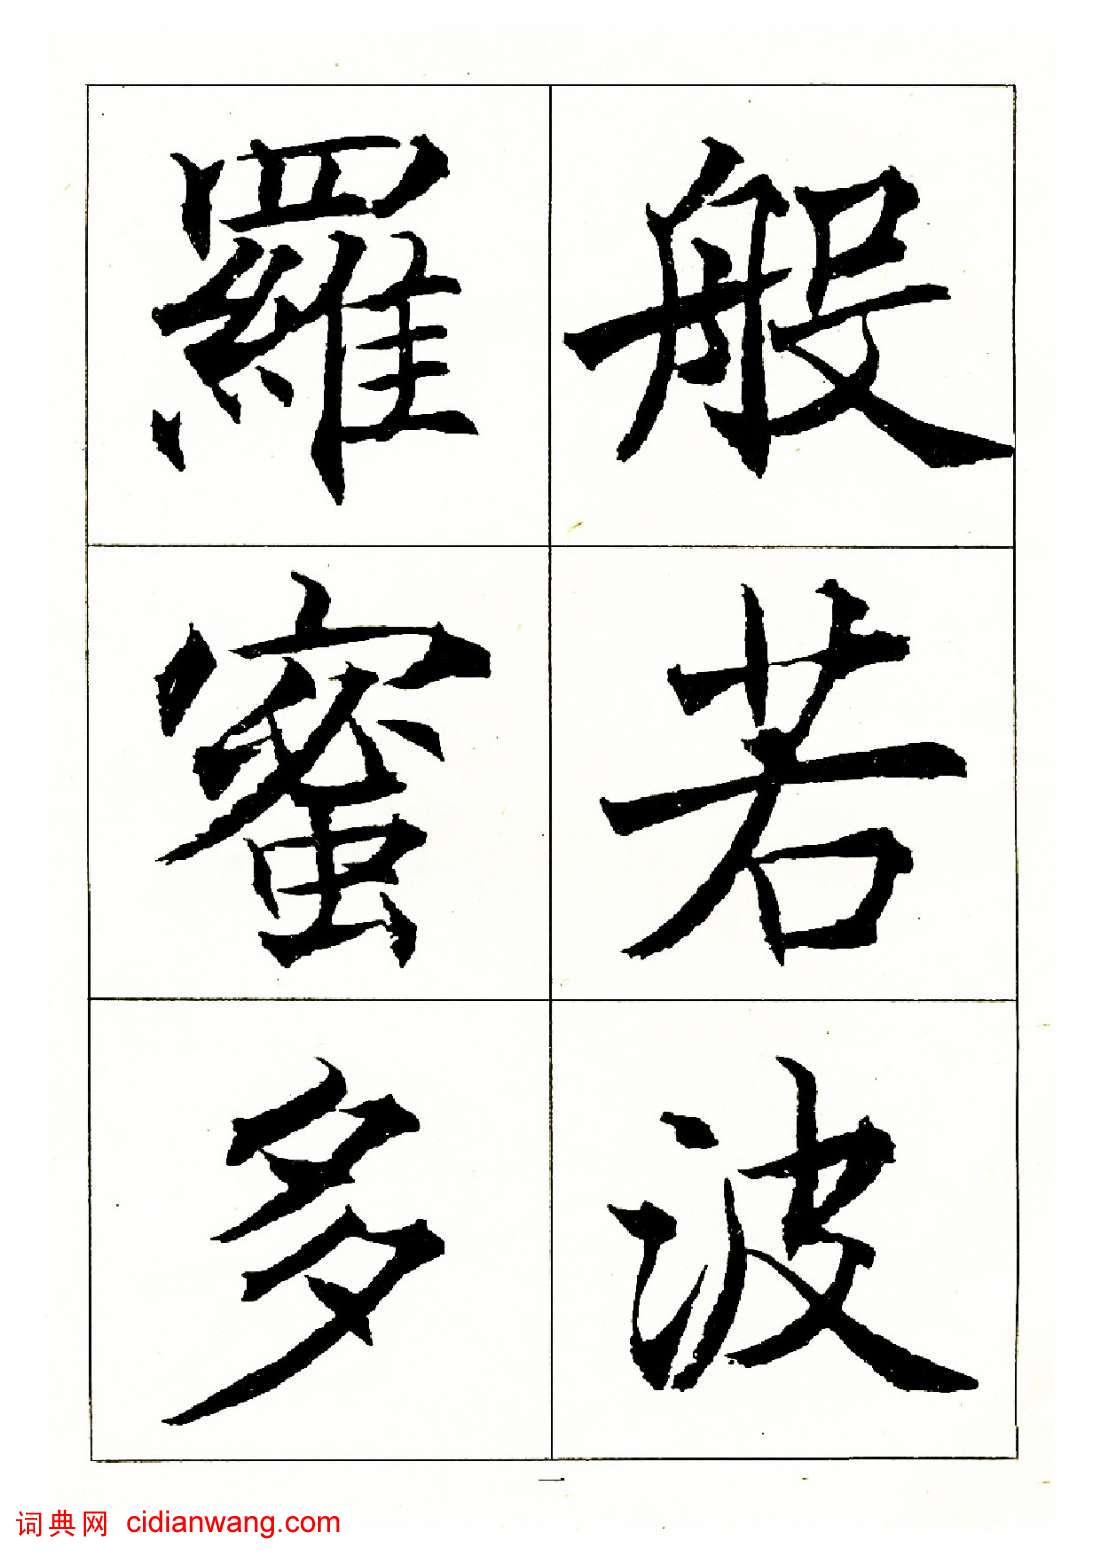 般若波
羅蜜多
一
词典网 cidianwang.com